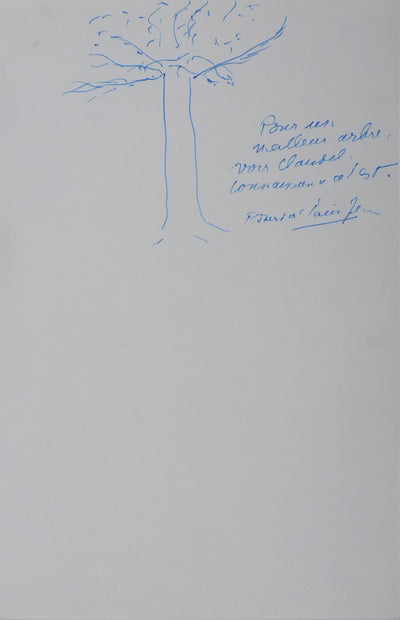 Pour un
meilleur arbre,
voir Claudel,
connaissance de l'est.